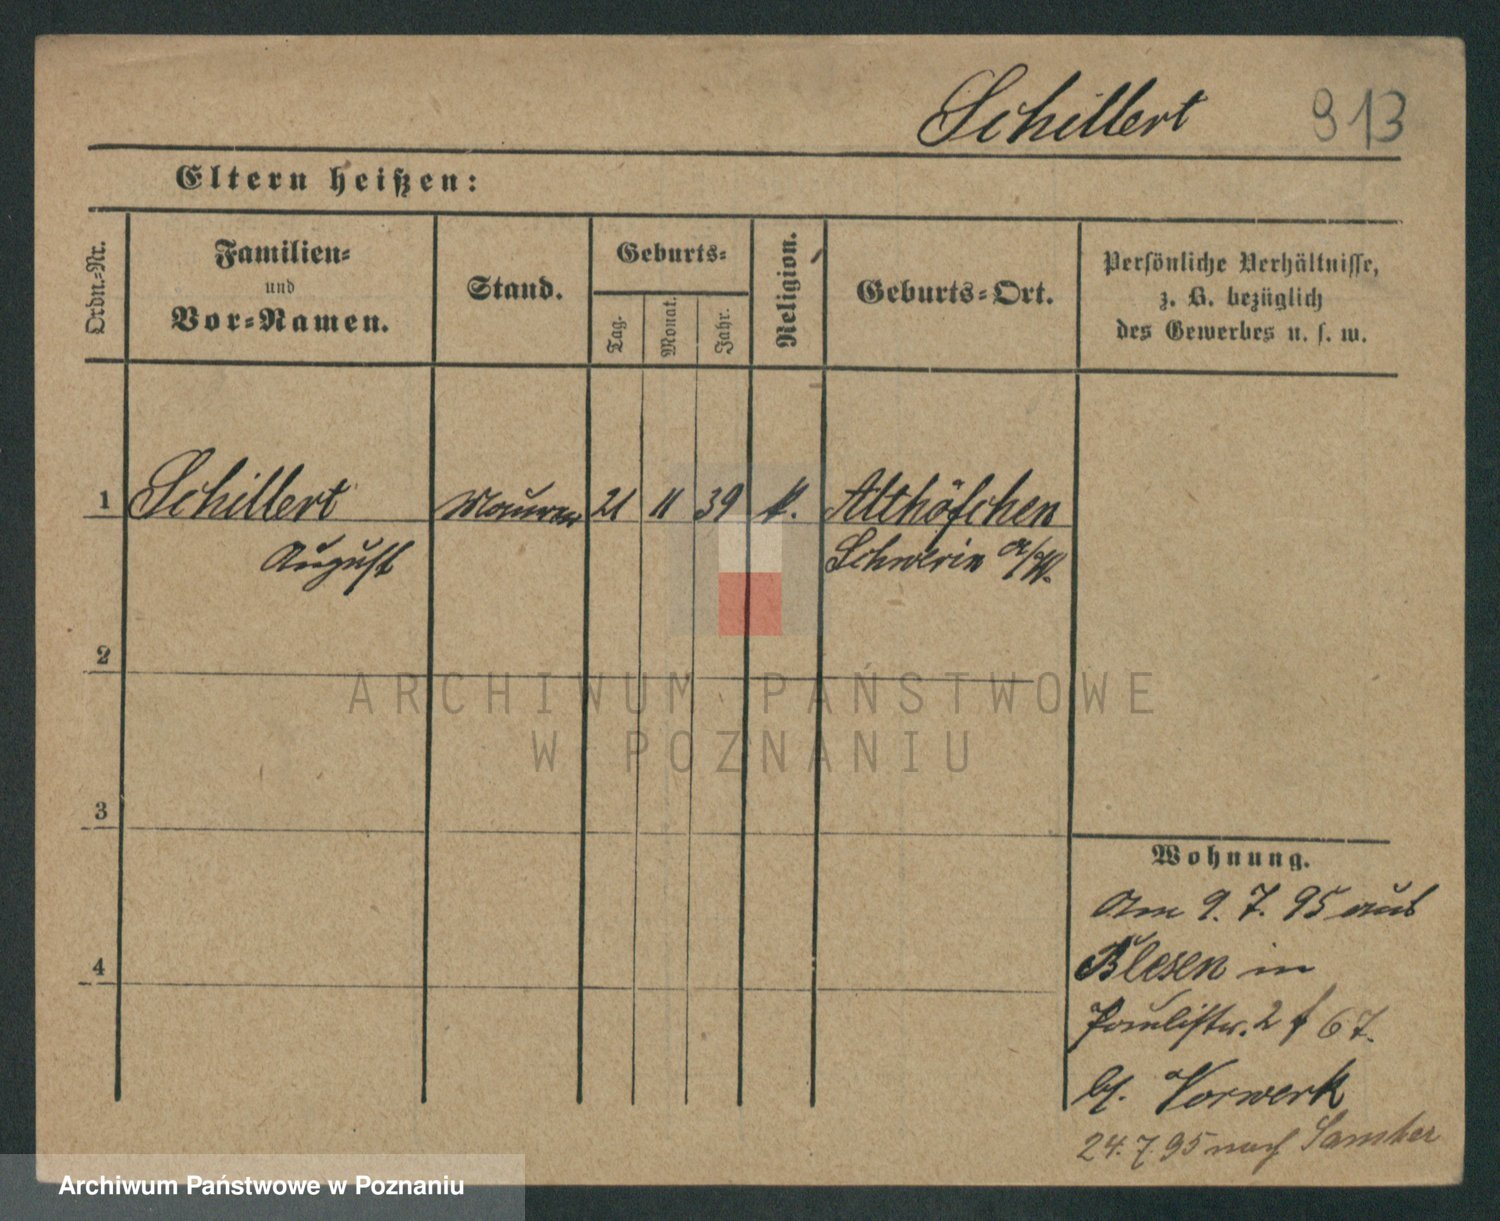 Schillert 913
Eltern heißen:
Ordn.-Nr.
Familien-
und
Vor-Namen.
Stand.
Geburts-
Tag.
Monat.
Jahr.
Religion.
Geburts-Ort.
Persönliche Verhältnisse,
z. B. bezüglich
des Gewerbes u. s. w.
1 Schillert Maurer 21 11 39 k. Althöfchen
August Schwerin a/W.
2
3
4
Wohnung.
Am 9. 7. 95 aus
Blesen in
Paulistr. 2 67.
bei Vorwerk
24. 7. 95 nach Samter
ARCHIWUM PAŃSTWOWE
W POZNANIU
Archiwum Państwowe w Poznaniu